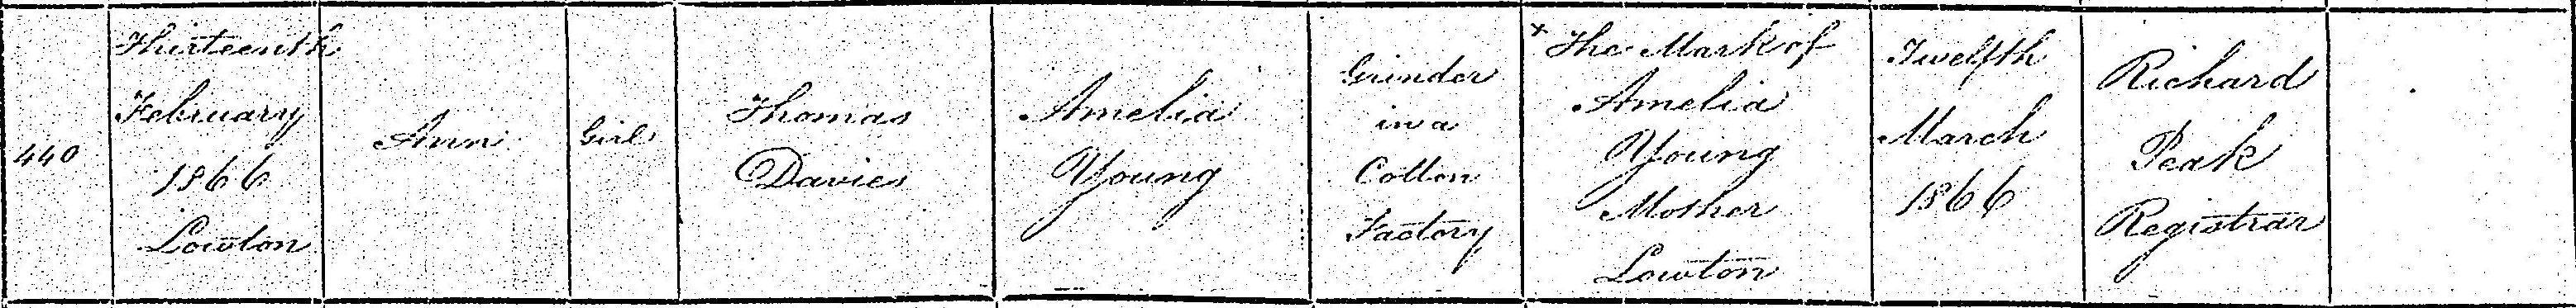 440
Thirteenth
February
1866
Lowton
Ann
Girl
Thomas
Davies
Amelia
Young
Grinder
in a
Cotton
Factory
x The Mark of
Amelia
Young
Mother
Lowton
Twelfth
March
1866
Richard
Peak
Registrar